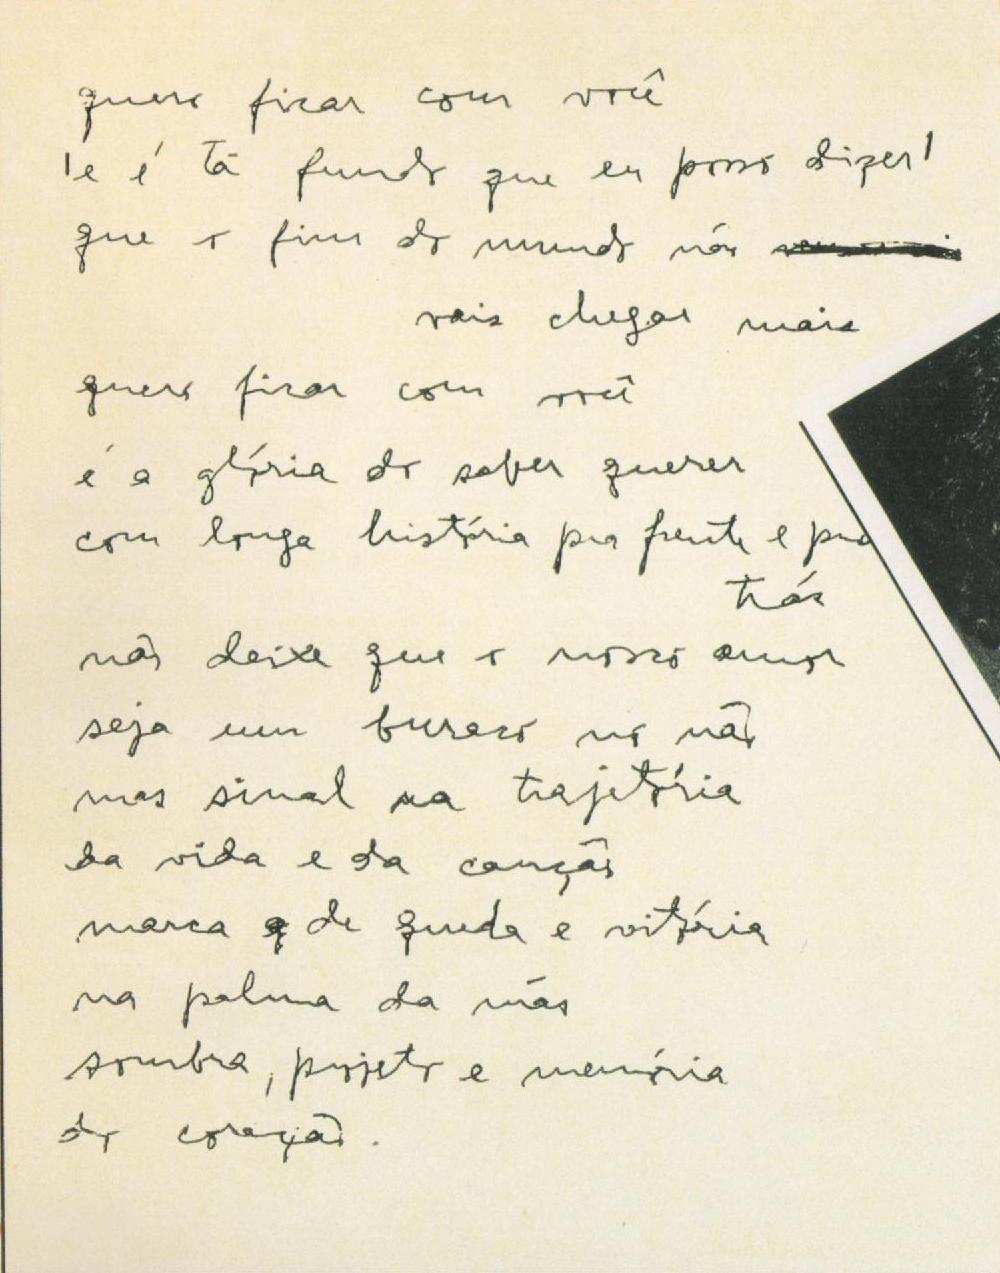 quero ficar com você
'e é tã fundo que eu posso dizer'
que o fim do mundo não
vais chegar mais
quero ficar com você
é a glória do saber querer
com longa história pra frente e pra
trás
não deixe que o nosso amor
seja um buraco no não
mas sinal na trajetória
da vida e da canção
marca de queda e vitória
na palma da mão
sombra, projeto e memória
do coração.